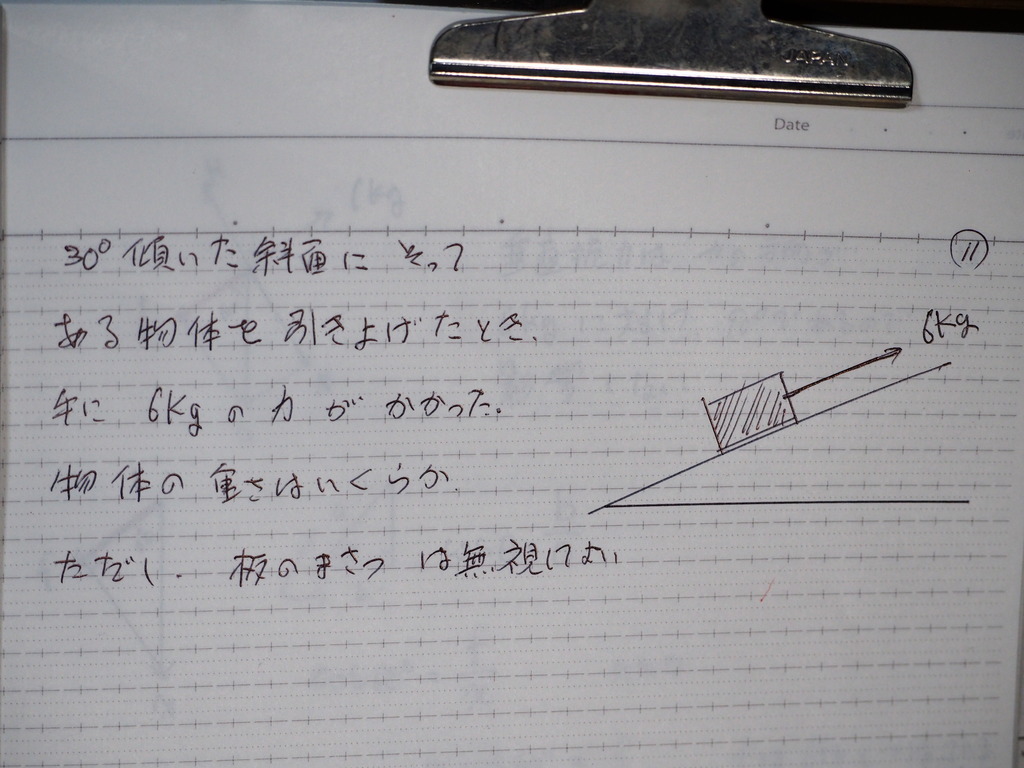 JAPAN
Date
30° 傾いた斜面に そって
⑪
ある物体を引きよげたとき、
手に 6Kgの力が かかった。
6Kg
物体の重さはいくらか.
ただし. 板のまさつは無視してよい